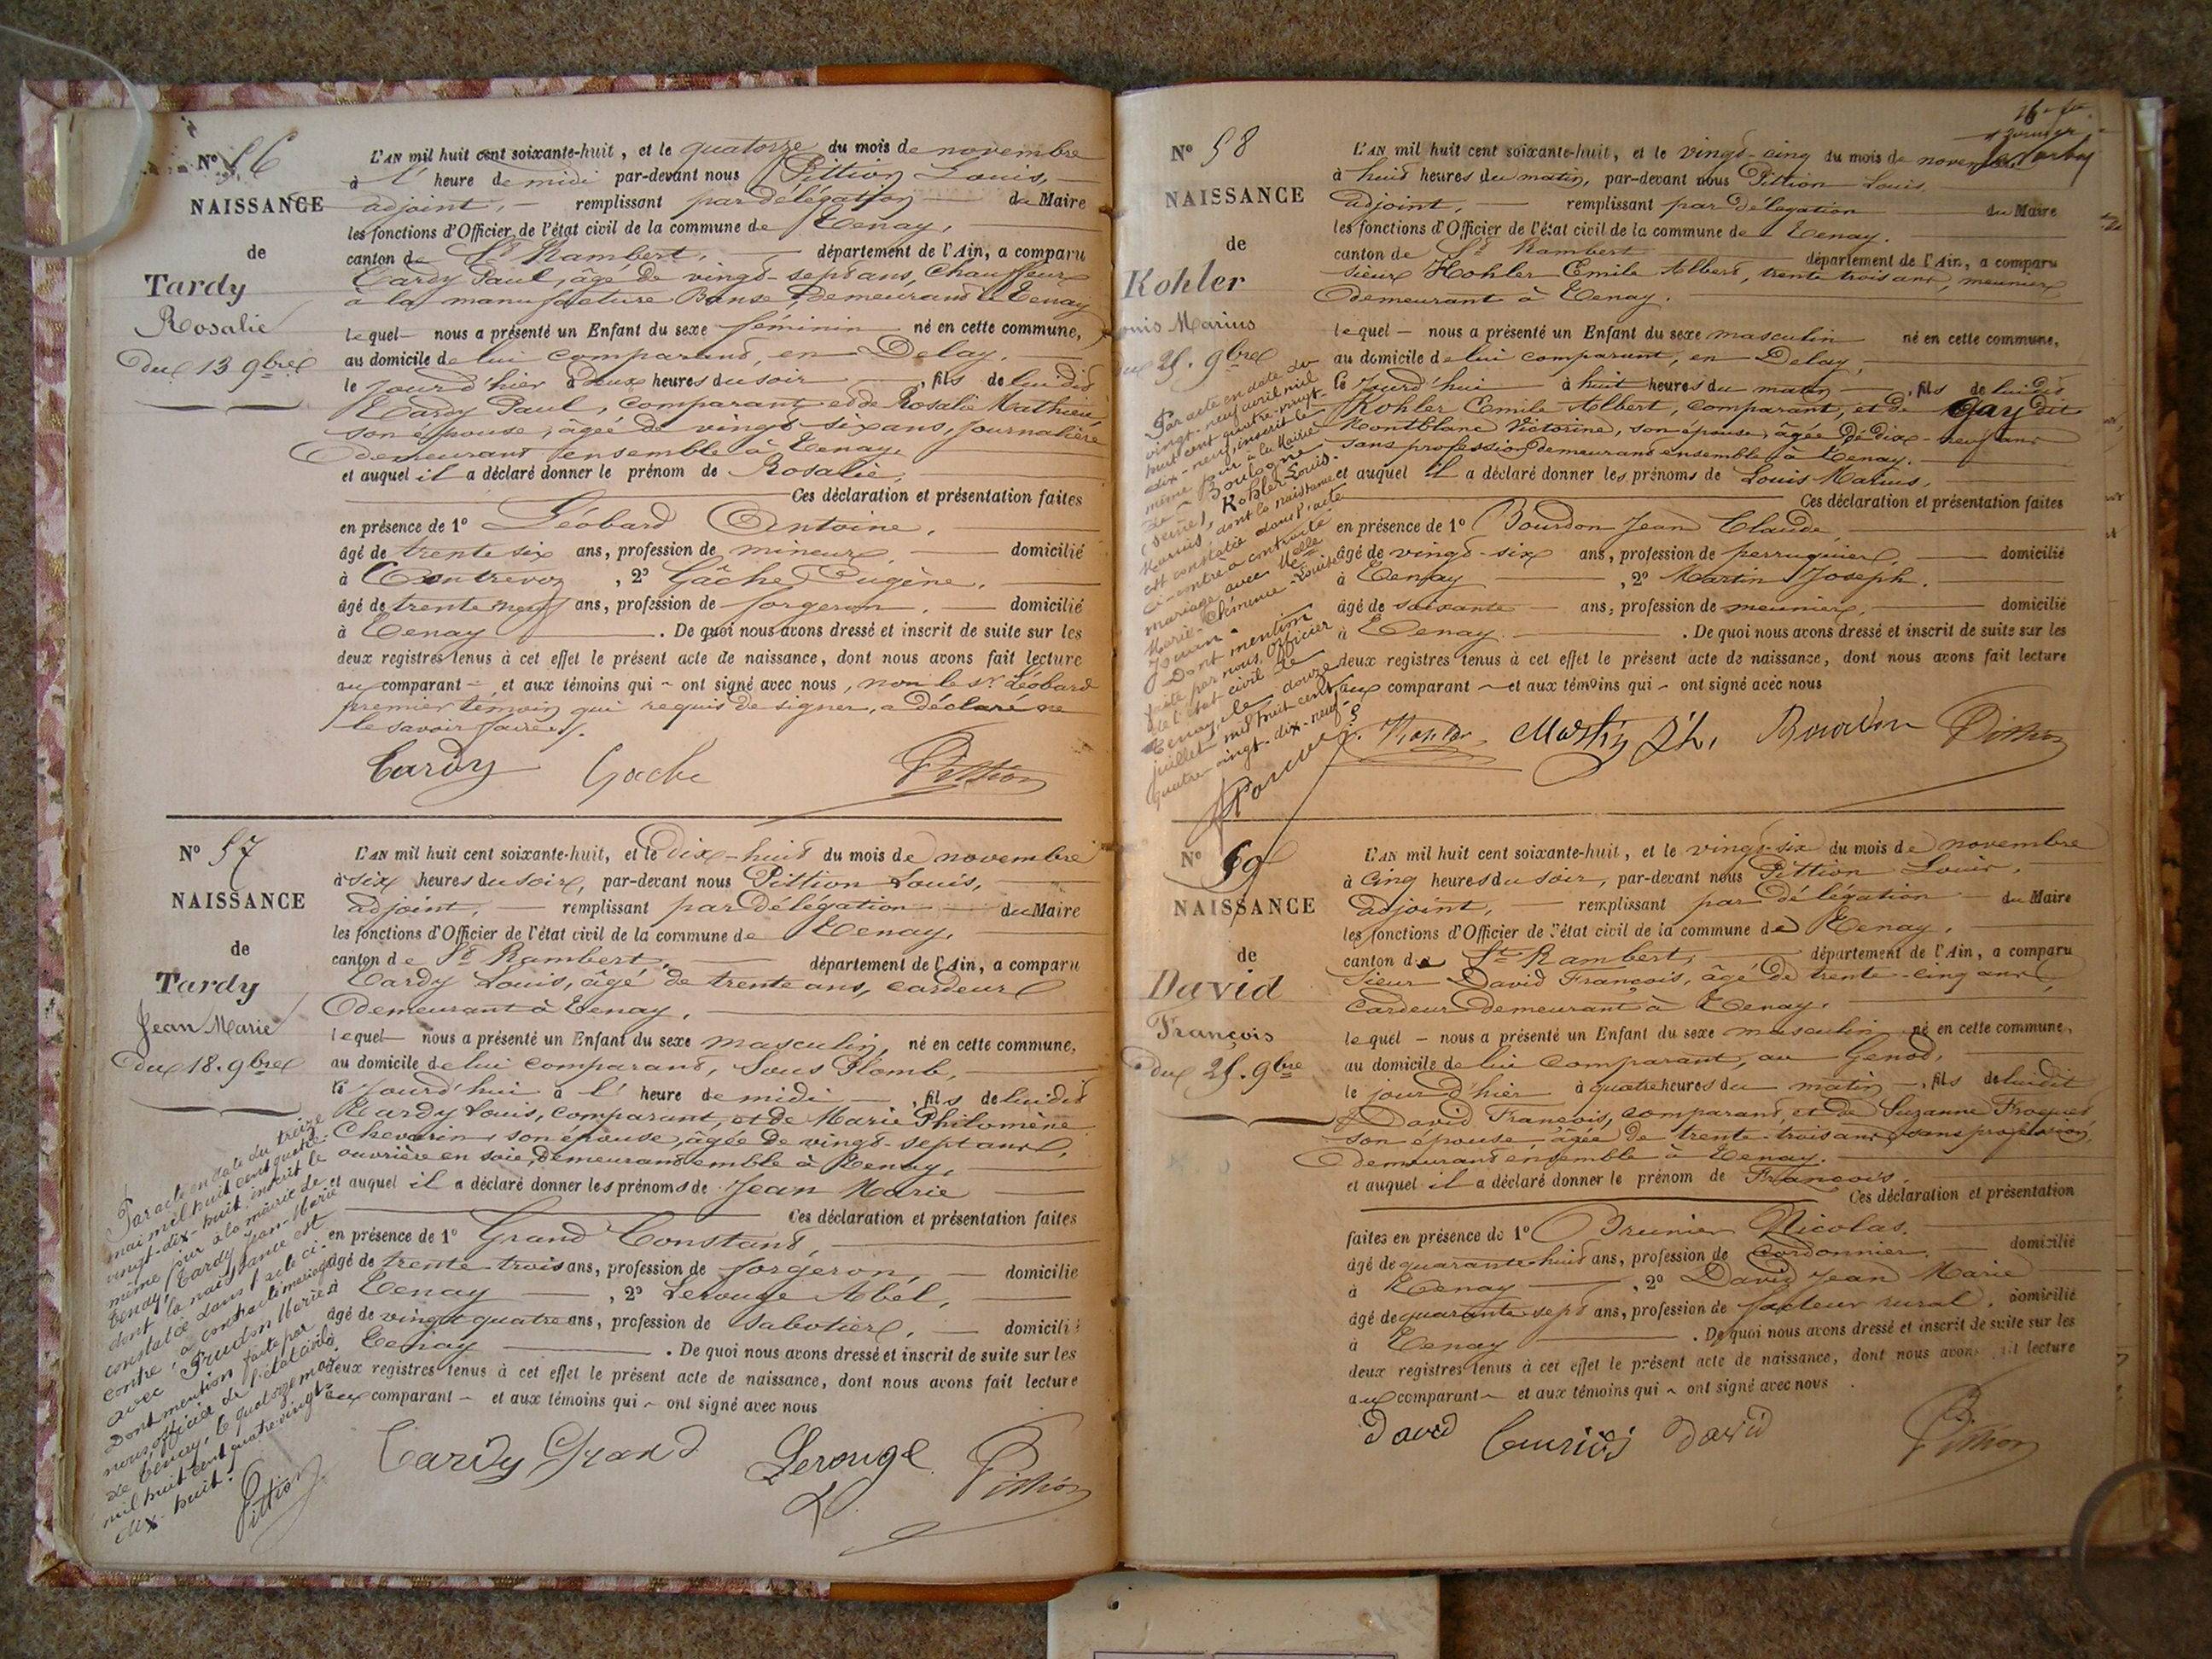 Nº 56
NAISSANCE
de
Tardy
Rosalie
du 13 9bre
L'AN mil huit cent soixante-huit, et le quatorze du mois de novembre
à l' heure de midi par-devant nous Pittion Louis,
adjoint, remplissant par délégation du Maire
les fonctions d'Officier de l'état civil de la commune de Tenay,
canton de St Rambert, département de l'Ain, a comparu
Tardy Paul, âgé de vingt-sept ans, chauffeur
à la manufacture demeurant à Tenay
lequel nous a présenté un Enfant du sexe féminin né en cette commune,
au domicile de lui comparant, en Delay,
le jour d'hier à deux heures du soir, fils de lui dit
Tardy Paul, comparant et de Rosalie Mathieu
son épouse, âgée de vingt-six ans, journalière
demeurant ensemble à Tenay,
et auquel il a déclaré donner le prénom de Rosalie,
Ces déclaration et présentation faites
en présence de 1º Léobard Antoine,
âgé de trente six ans, profession de mineur, domicilié
à Contrevoz, 2º Gâche Eugène,
âgé de trente neuf ans, profession de forgeron, domicilié
à Tenay. De quoi nous avons dressé et inscrit de suite sur les
deux registres tenus à cet effet le présent acte de naissance, dont nous avons fait lecture
au comparant et aux témoins qui ont signé avec nous, non le sr Léobard
premier témoin qui requis de signer, a déclaré ne
le savoir faire.
Tardy Gache Pittion
Nº 57
NAISSANCE
de
Tardy
Jean Marie
du 18. 9bre
L'AN mil huit cent soixante-huit, et le dix-huit du mois de novembre
à six heures du soir, par-devant nous Pittion Louis,
adjoint, remplissant par délégation du Maire
les fonctions d'Officier de l'état civil de la commune de Tenay,
canton de St Rambert, département de l'Ain, a comparu
Tardy Louis, âgé de trente ans, cardeur
demeurant à Tenay,
lequel nous a présenté un Enfant du sexe masculin, né en cette commune,
au domicile de lui comparant, Sous Plomb,
le jourd'hui à l' heure de midi, fils de lui dit
Tardy Louis, comparant, et de Marie Philomène
Chevarin son épouse, âgée de vingt-sept ans,
ouvrière en soie, demeurant emble à Tenay,
et auquel il a déclaré donner les prénoms de Jean Marie
Ces déclaration et présentation faites
en présence de 1º Grand Constant,
âgé de trente trois ans, profession de forgeron, domicilié
à Tenay, 2º Lerouge Abel,
âgé de vingt quatre ans, profession de sabotier, domicilié
à Tenay. De quoi nous avons dressé et inscrit de suite sur les
deux registres tenus à cet effet le présent acte de naissance, dont nous avons fait lecture
aux comparant et aux témoins qui ont signé avec nous
Tardy Grand Lerouge Pittion
Par acte en date du treize
mai mil huit cent quatre-
vingt-dix-huit inscrit le
même jour à la mairie de
Tenay, Tardy Jean-Marie
dont la naissance est
constatée dans l'acte ci-
contre, a contracté mariage
avec Prudon Marie
Dont mention faite par
nous, officier de l'état civil
de Tenay, le quatorze mai
mil huit cent quatre vingt-
dix-huit.
Pittion
Nº 58
NAISSANCE
de
Kohler
ouis Marius
du 25. 9bre
L'AN mil huit cent soixante-huit, et le vingt-cinq du mois de novembre
à huit heures du matin, par-devant nous Pittion Louis,
adjoint, remplissant par délégation du Maire
les fonctions d'Officier de l'état civil de la commune de Tenay.
canton de St Rambert département de l'Ain, a comparu
sieur Kohler Emile Albert, trente trois ans, meunier
demeurant à Tenay.
lequel nous a présenté un Enfant du sexe masculin né en cette commune,
au domicile de lui comparant, en Delay,
le jourd'hui à huit heures du matin, fils de lui dit
Kohler Emile Albert, comparant, et de Gay dit
Montblanc Victorine, son épouse, âgée de dix-neuf ans
sans profession demeurant ensemble à Tenay.
et auquel il a déclaré donner les prénoms de Louis Marius,
Ces déclaration et présentation faites
en présence de 1º Bourdon Jean Claude
âgé de vingt-six ans, profession de perruquier, domicilié
à Tenay, 2º Martin Joseph.
âgé de soixante ans, profession de meunier, domicilié
à Tenay. De quoi nous avons dressé et inscrit de suite sur les
deux registres tenus à cet effet le présent acte de naissance, dont nous avons fait lecture
aux comparant et aux témoins qui ont signé avec nous
Kohler Martin Bourdon Pittion
Par acte en date du
vingt-neuf avril mil
huit cent quatre-vingt-
dix-neuf, inscrit le
même jour à la Mairie
de Boulogne
(Seine), Kohler Louis
Marius, dont la naissance
est constatée dans l'acte
ci-contre a contracté
mariage avec Melle
Marie Louise
Dont mention
faite par nous, Officier
de l'état civil de
Tenay, le douze
juillet mil huit cent
quatre-vingt-dix-neuf.
Nº 59
NAISSANCE
de
David
François
du 25. 9bre
L'AN mil huit cent soixante-huit, et le vingt-six du mois de novembre
à cinq heures du soir, par-devant nous Pittion Louis,
adjoint, remplissant par délégation du Maire
les fonctions d'Officier de l'état civil de la commune de Tenay,
canton de St Rambert, département de l'Ain, a comparu
Sieur David François, âgé de trente-cinq ans,
cardeur demeurant à Tenay,
lequel nous a présenté un Enfant du sexe masculin né en cette commune,
au domicile de lui comparant, au Genod,
le jour d'hier à quatre heures du matin, fils de lui dit
David François, comparant, et de Suzanne
son épouse, âgée de trente-trois ans sans profession,
demeurant ensemble à Tenay.
et auquel il a déclaré donner le prénom de François.
Ces déclaration et présentation
faites en présence de 1º Brunier Nicolas.
âgé de quarante huit ans, profession de cordonnier, domicilié
à Tenay, 2º David Jean Marie
âgé de quarante sept ans, profession de facteur rural, domicilié
à Tenay. De quoi nous avons dressé et inscrit de suite sur les
deux registres tenus à cet effet le présent acte de naissance, dont nous avons fait lecture
aux comparant et aux témoins qui ont signé avec nous
David David Pittion